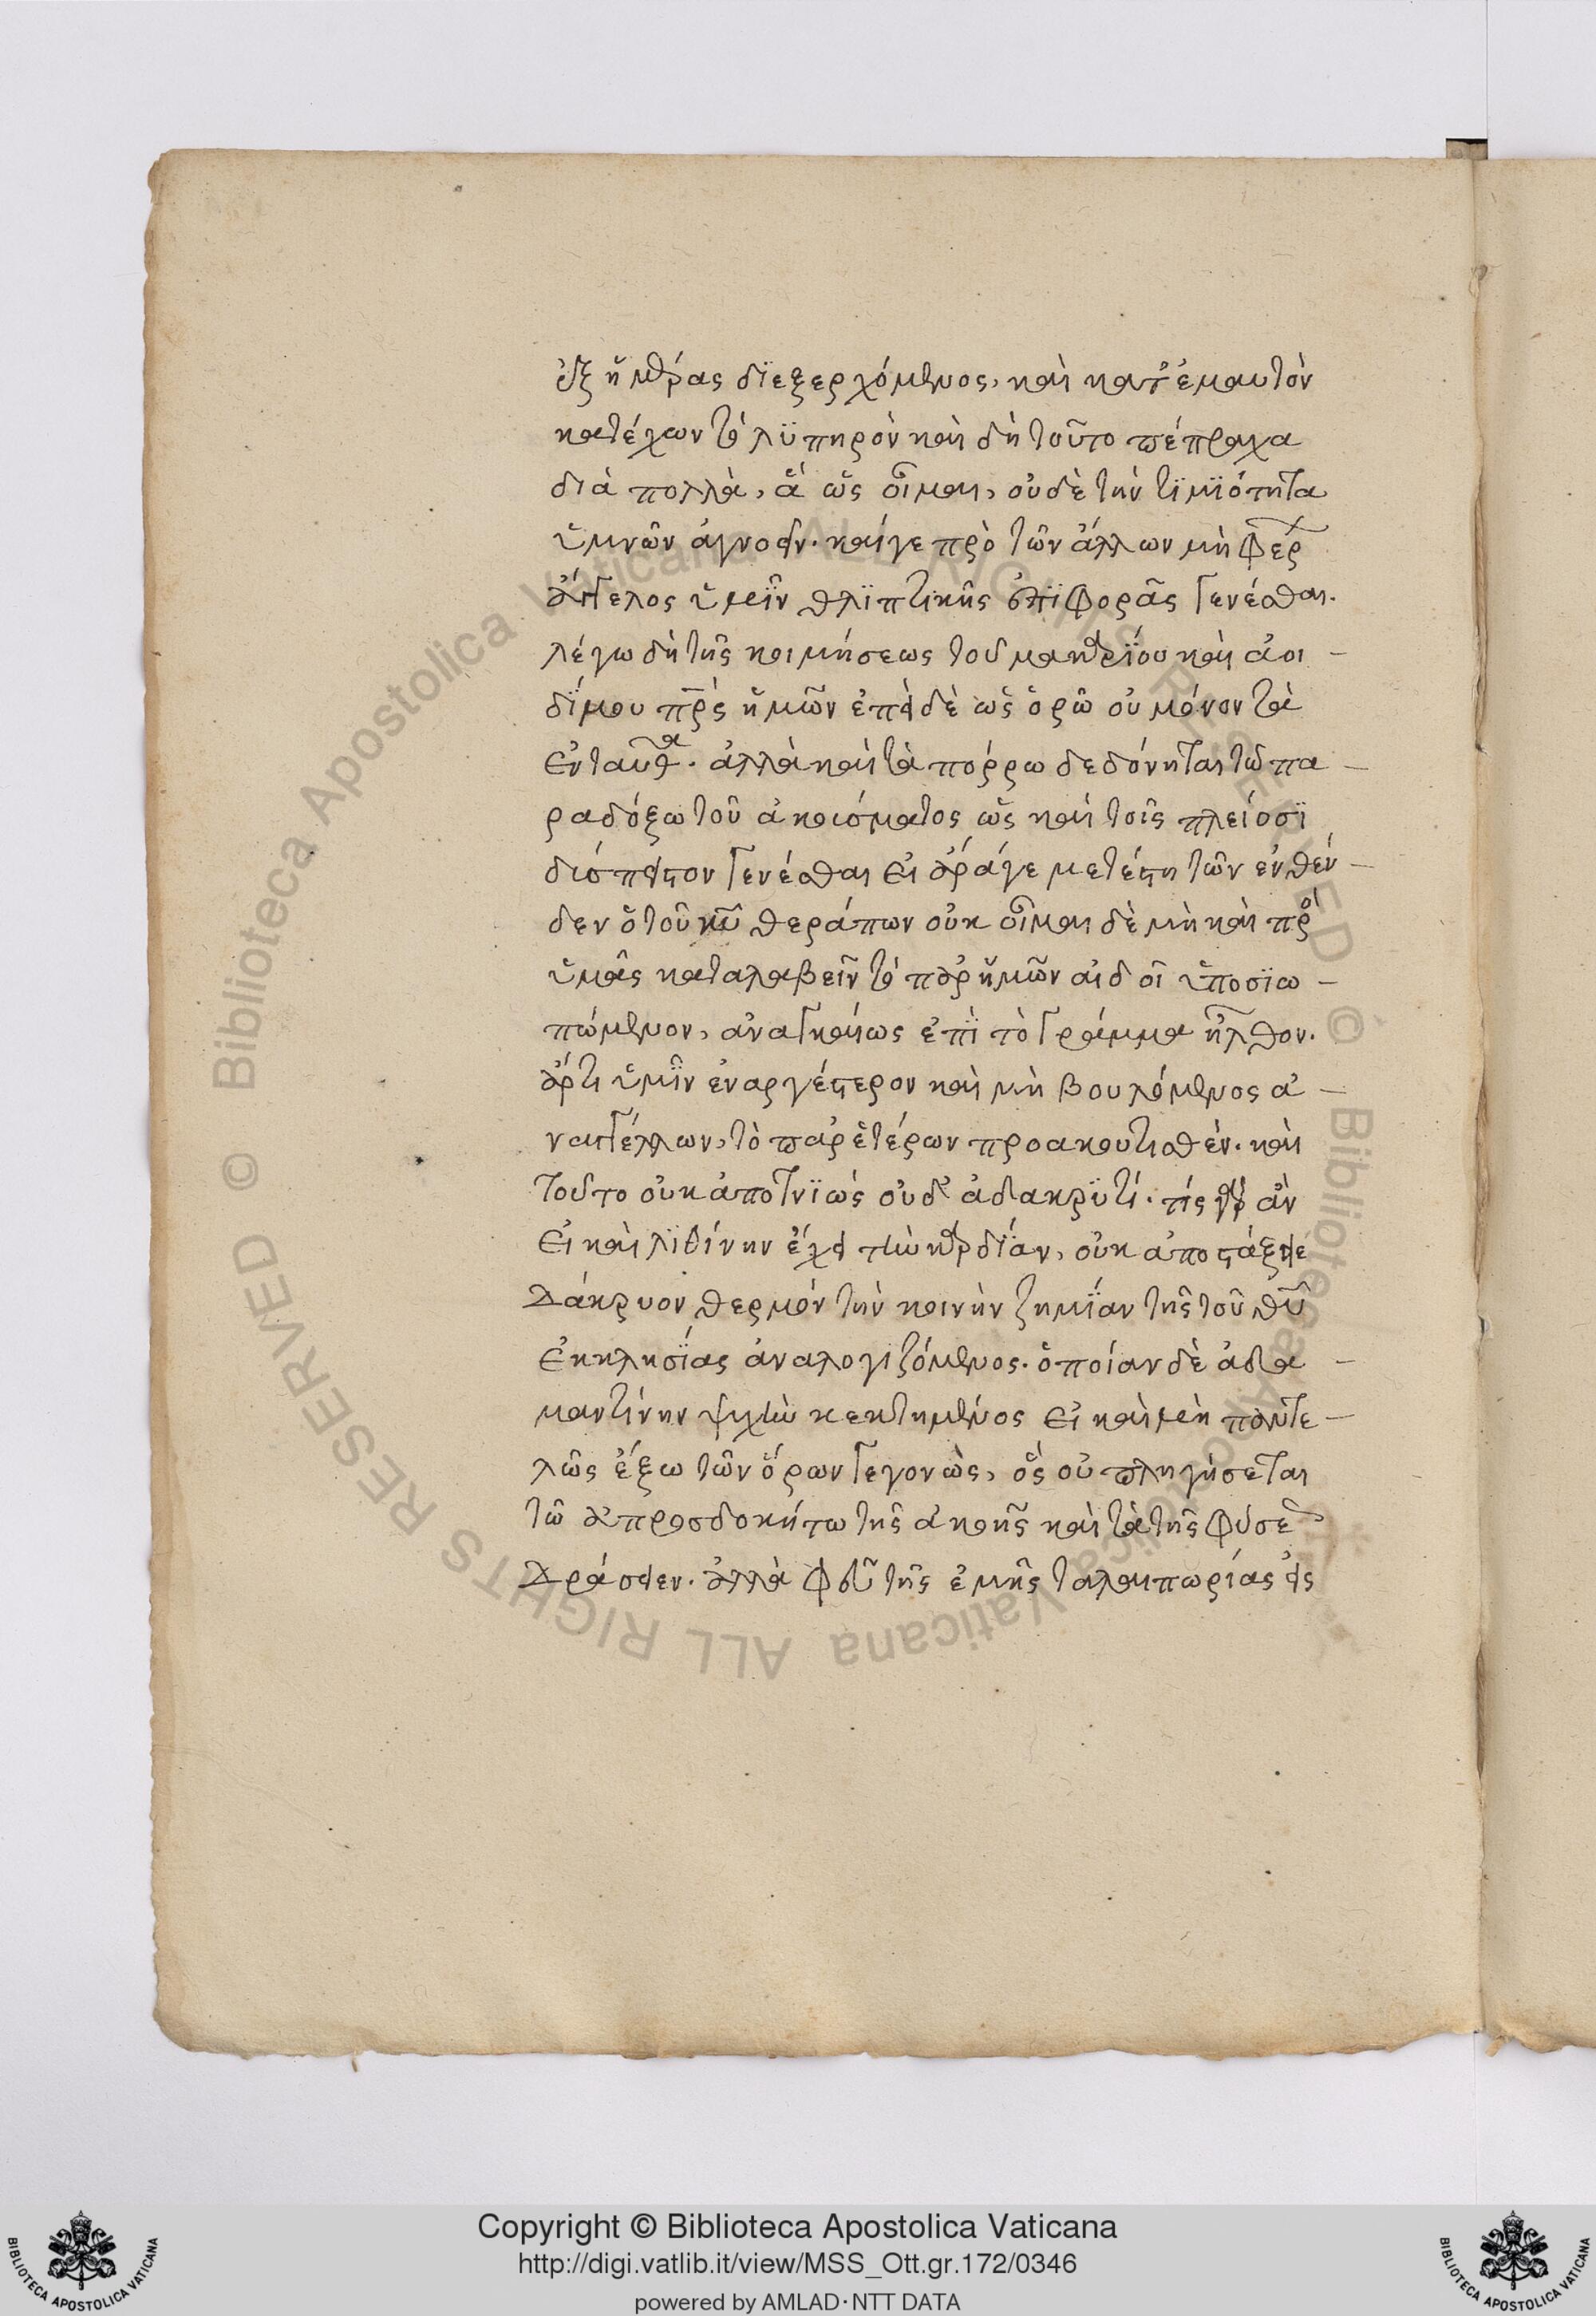 ἐξ ἡμέρας διεξερχόμενος, καὶ κατ' ἐμαυτὸν
κατέχων τὸ λϋπηρὸν καὶ δὴ τοῦτο πέπραχα
διὰ πολλὰ, ἃ ὡς οἶμαι, οὐδὲ τὴν τϊμϊότητα
ὑμνῶν ἀγνοεῖν. καίγε πρὸ τῶν ἄλλων μὴ φερ
ἄγγελος ὑμῖν θλϊπτικῆς ἐπϊφορᾶς γενέσθαι.
λέγω δὴ τῆς κοιμήσεως τοῦ μακαρΐου καὶ ἀοι -
δΐμου πρς ἡμῶν ἐπεὶ δὲ ὡς ὁρῶ οὐ μόνον τὰ
ἐνταῦθα. ἀλλὰ καὶ τὰ πόρρω δεδόνηται τῶ πα -
ραδόξω τοῦ ἀκούσματος ὡς καὶ τοῖς πλείοσϊ
διάπειστον γενέσθαι εἰ ἄράγε μετέστη τῶν ἐνθέν -
δεν ὁ τοῦ κυ θεράπων οὐκ οἶμαι δὲ μὴ καὶ πρὸ
ὑμᾶς καταλαβεῖν τὸ παρ' ἡμῶν αἰδοῖ ὑποσϊω -
πώμενον, ἀναγκαίως ἐπῒ τὸ γράμμα ἦλθον.
ἄρτι ὑμῖν ἐναργέστερον καὶ μὴ βουλόμενος ἀ -
ναγγέλλων, τὸ παρ' ἑτέρων προακουτισθὲν. καὶ
τοῦτο οὐκ ἀποτνϊώς οὐδ' ἀδακρϋτί. τίς γὰρ ἂν
εἰ καὶ λϊθίνην ἔχει τὴν καρδΐαν, οὐκ ἀποστάξειε
δάκρυον θερμόν τὴν κοινὴν ζημΐαν τῆς τοῦ θυ
ἐκκλησΐας ἀναλογιζόμενος. ὁποίαν δὲ ἀδα -
μαντίνην ψυχὴν κεκτημένος εἰ καὶ μὴ παντε -
λῶς ἔξω τῶν ὅρων γεγονὼς, ὃς οὐ πληγήσεται
τῶ ἀπροσδοκήτω τῆς ἀκοῆς καὶ τὰ τῆς φύσε
δράσειεν. ἀλλὰ φεῦ τῆς ἐμῆς ταλαιπωρίας εἰς